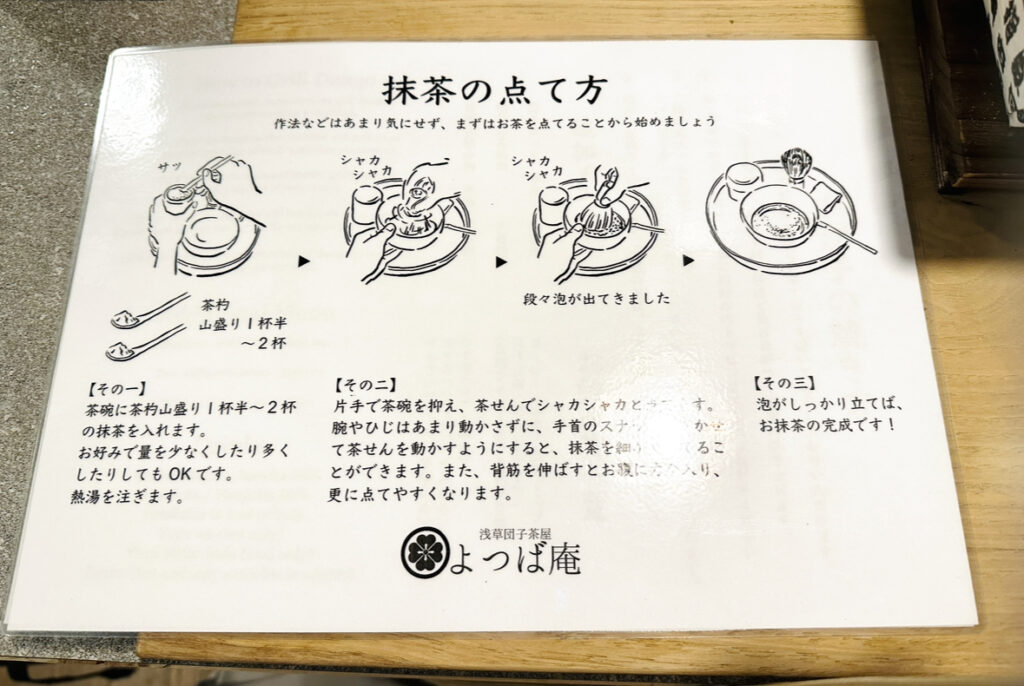 抹茶の点て方
作法などはあまり気にせず、まずはお茶を点てることから始めましょう
サッ
シャカ
シャカ
シャカ
シャカ
段々泡が出てきました
茶杓
山盛り1杯半
〜2杯
【その一】
茶碗に茶杓山盛り1杯半〜2杯
の抹茶を入れます。
お好みで量を少なくしたり多く
したりしてもOKです。
熱湯を注ぎます。
【その二】
片手で茶碗を抑え、茶せんでシャカシャカと す。
腕やひじはあまり動かさずに、手首のスナッ かせ
て茶せんを動かすようにすると、抹茶を細 るこ
とができます。また、背筋を伸ばすとお腹に 入り、
更に点てやすくなります。
【その三】
泡がしっかり立てば、
お抹茶の完成です！
浅草団子茶屋
よつば庵